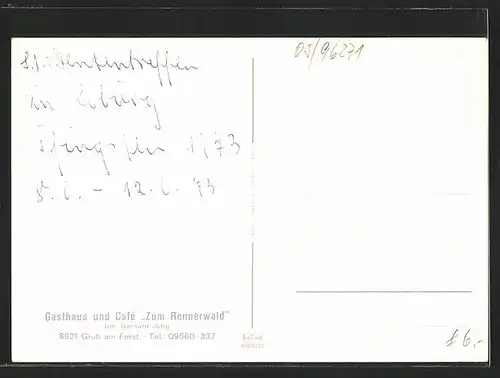 in Coburg
Pfingsten 1973
8.6. - 12.6. 73
DJ/96271
Gasthaus und Café „Zum Rennerwald"
Inh. Gerhard Jung
8621 Grub am Forst - Tel. 09560-337
£6,-